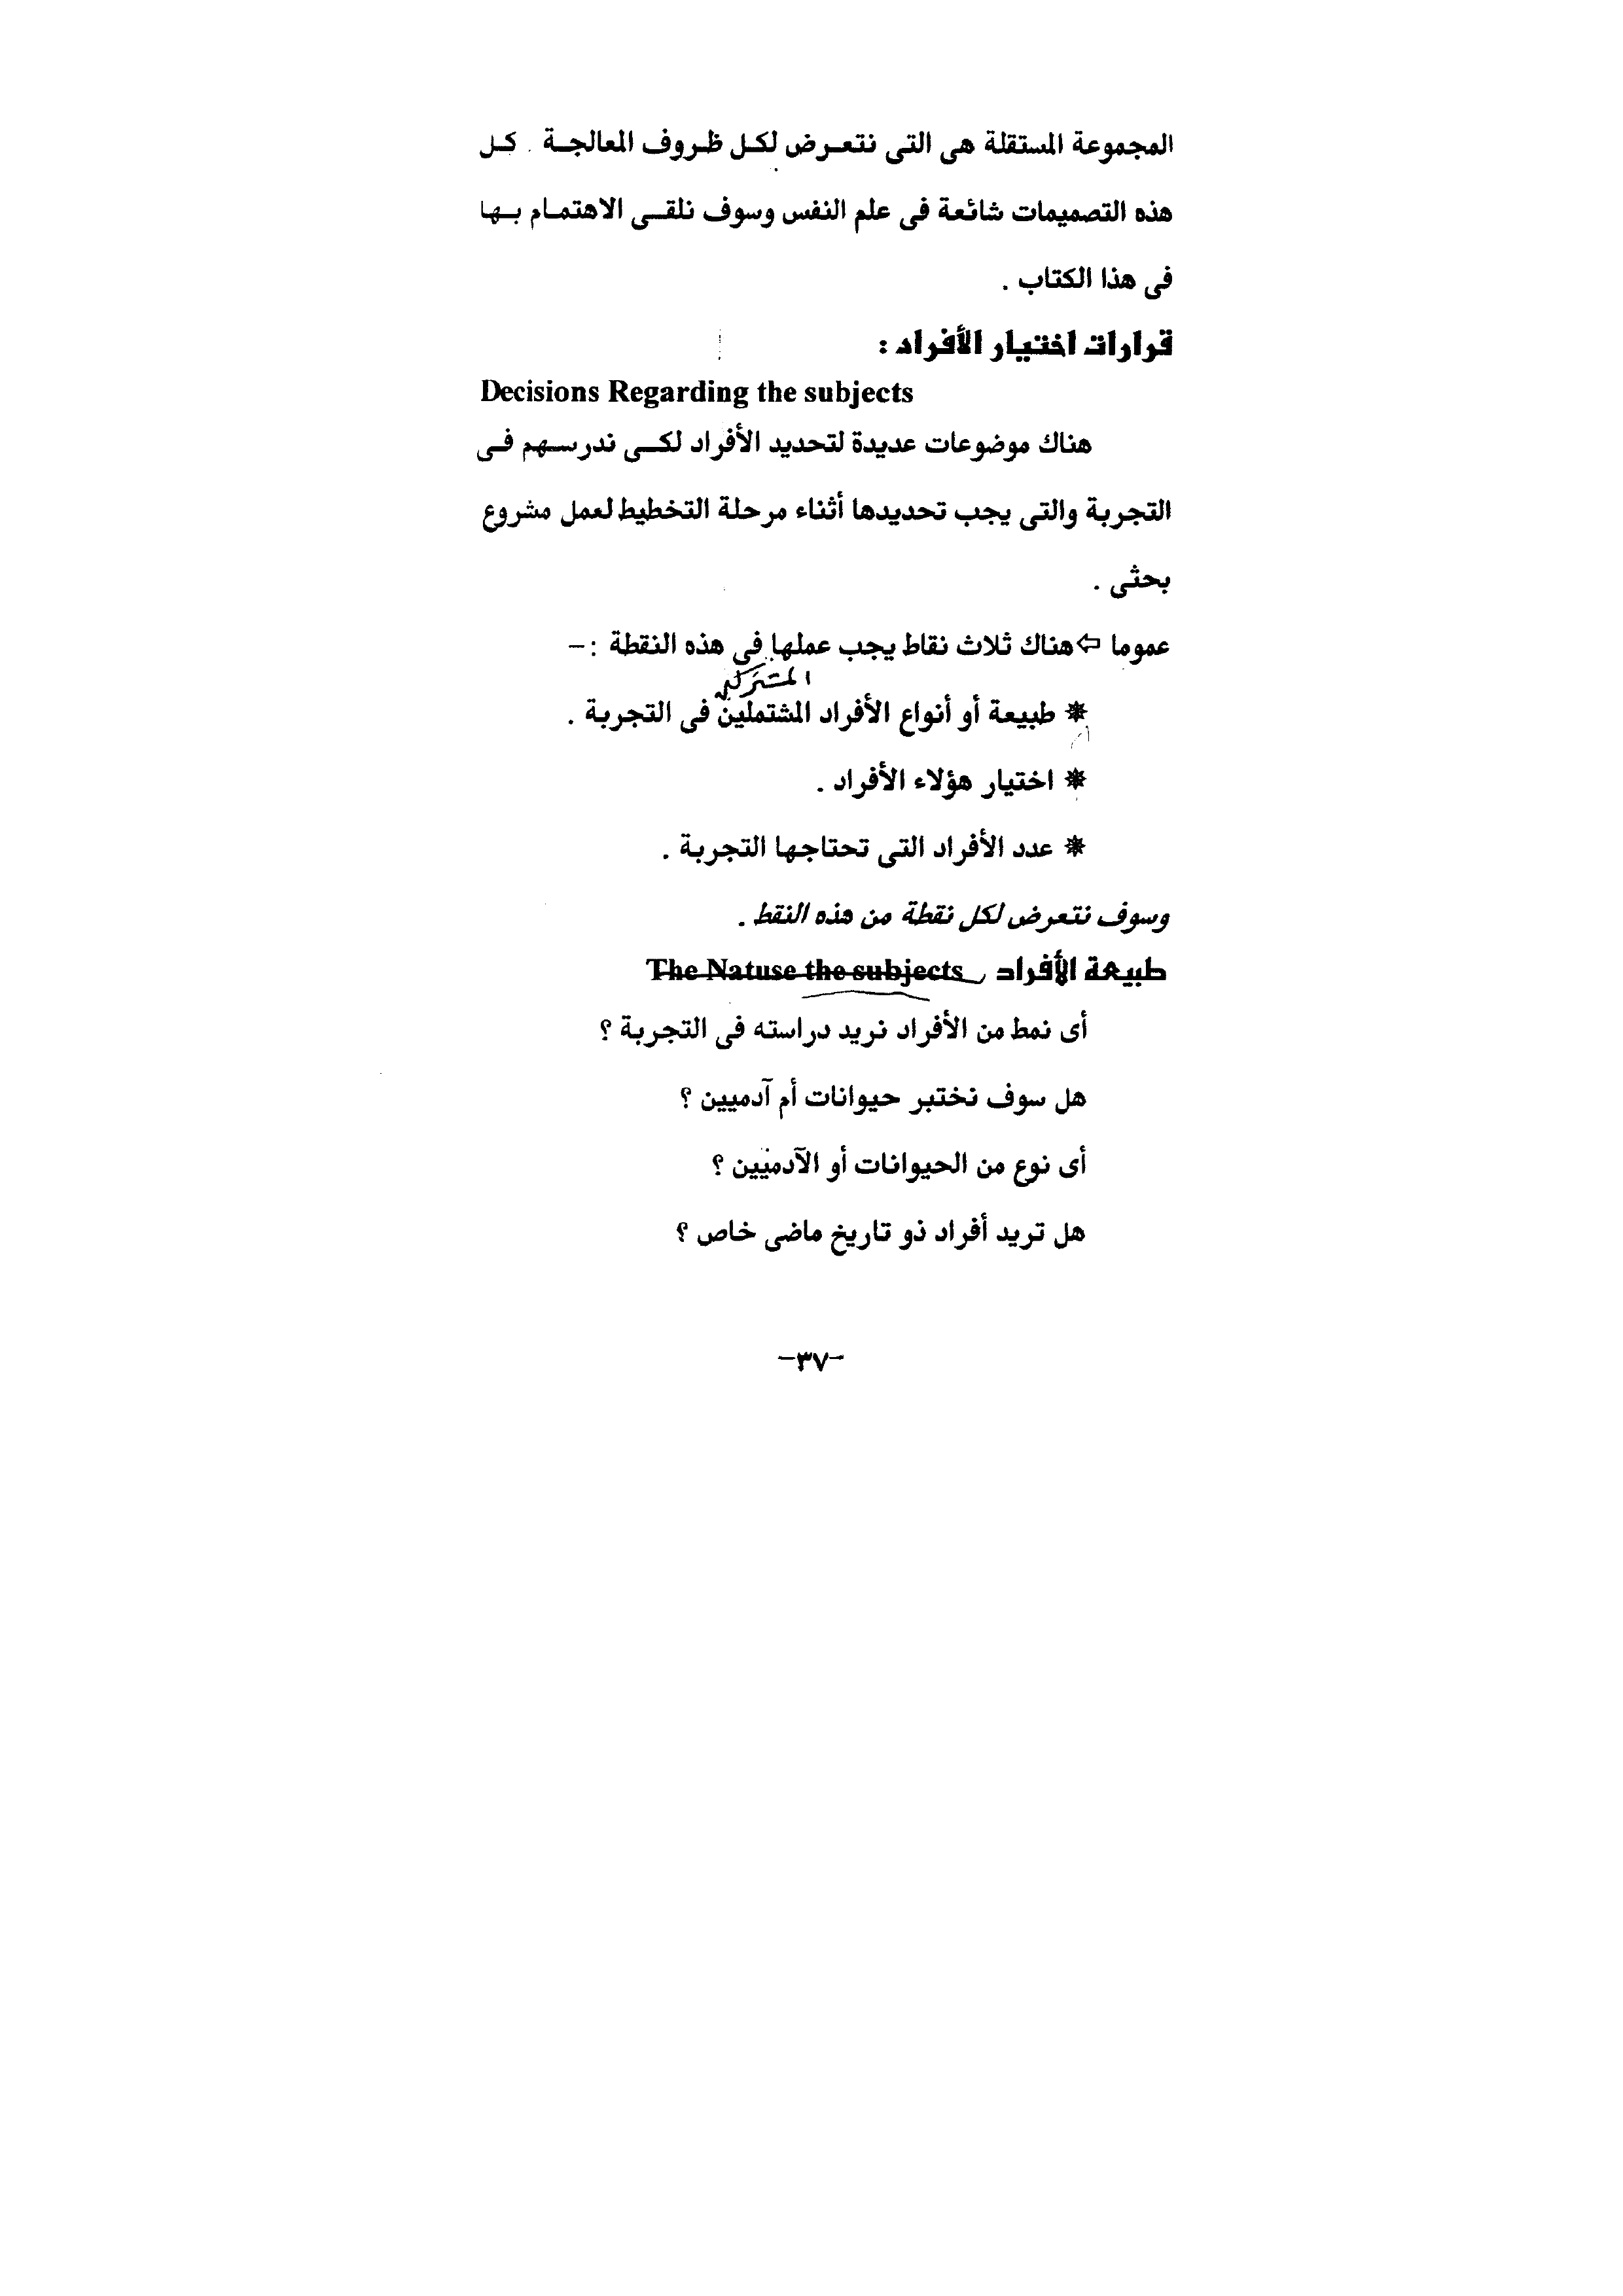 المجموعة المستقلة هى التى نتعرض لكل ظروف المعالجة . كل
هذه التصميمات شائعة فى علم النفس وسوف نلقى الاهتمام بها
فى هذا الكتاب .
قرارات اختيار الأفراد :
Decisions Regarding the subjects
هناك موضوعات عديدة لتحديد الأفراد لكى ندرسهم فى
التجربة والتى يجب تحديدها أثناء مرحلة التخطيط لعمل مشروع
بحثى .
عموما ⇦ هناك ثلاث نقاط يجب عملها فى هذه النقطة :-
* طبيعة أو أنواع الأفراد المشتملين فى التجربة .
* اختيار هؤلاء الأفراد .
* عدد الأفراد التى تحتاجها التجربة .
وسوف نتعرض لكل نقطة من هذه النقط .
طبيعة الأفراد The Natuse the subjects
أى نمط من الأفراد نريد دراسته فى التجربة ؟
هل سوف نختبر حيوانات أم آدميين ؟
أى نوع من الحيوانات أو الآدميين ؟
هل تريد أفراد ذو تاريخ ماضى خاص ؟
-٣٧-